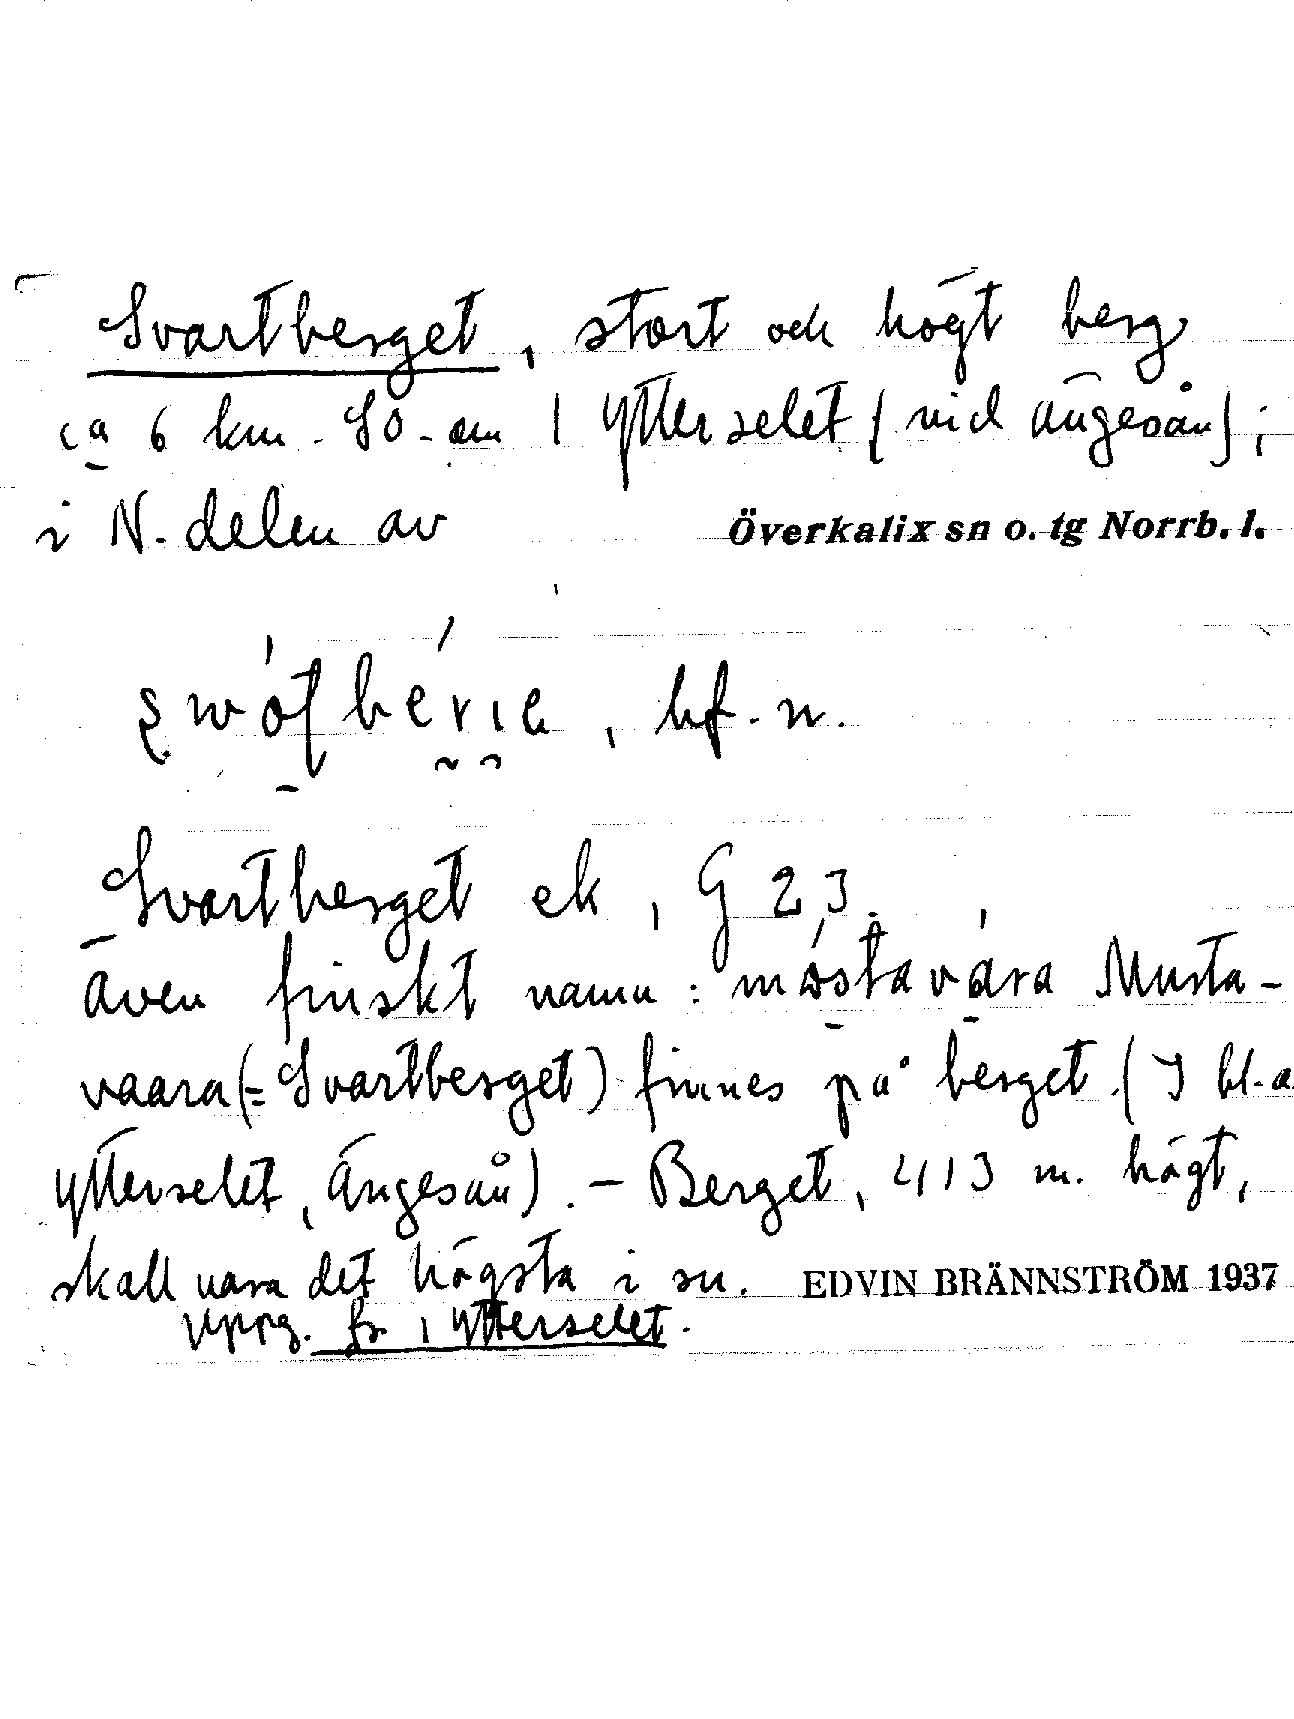 Svartberget, stort och högt berg
ca 6 km. SO om Ytterselet (vid Ängesån);
i N. delen av Överkalix sn o. tg Norrb. l.
bf. n.
Svartberget ek, G 23.
även finskt namn: Musta-
vaara (= Svartberget) finnes på berget. (I bl. a
Ytterselet, Ängesån). – Berget, 413 m. högt,
skall vara det högsta i sn. EDVIN BRÄNNSTRÖM 1937
Uppg. fr. Ytterselet.